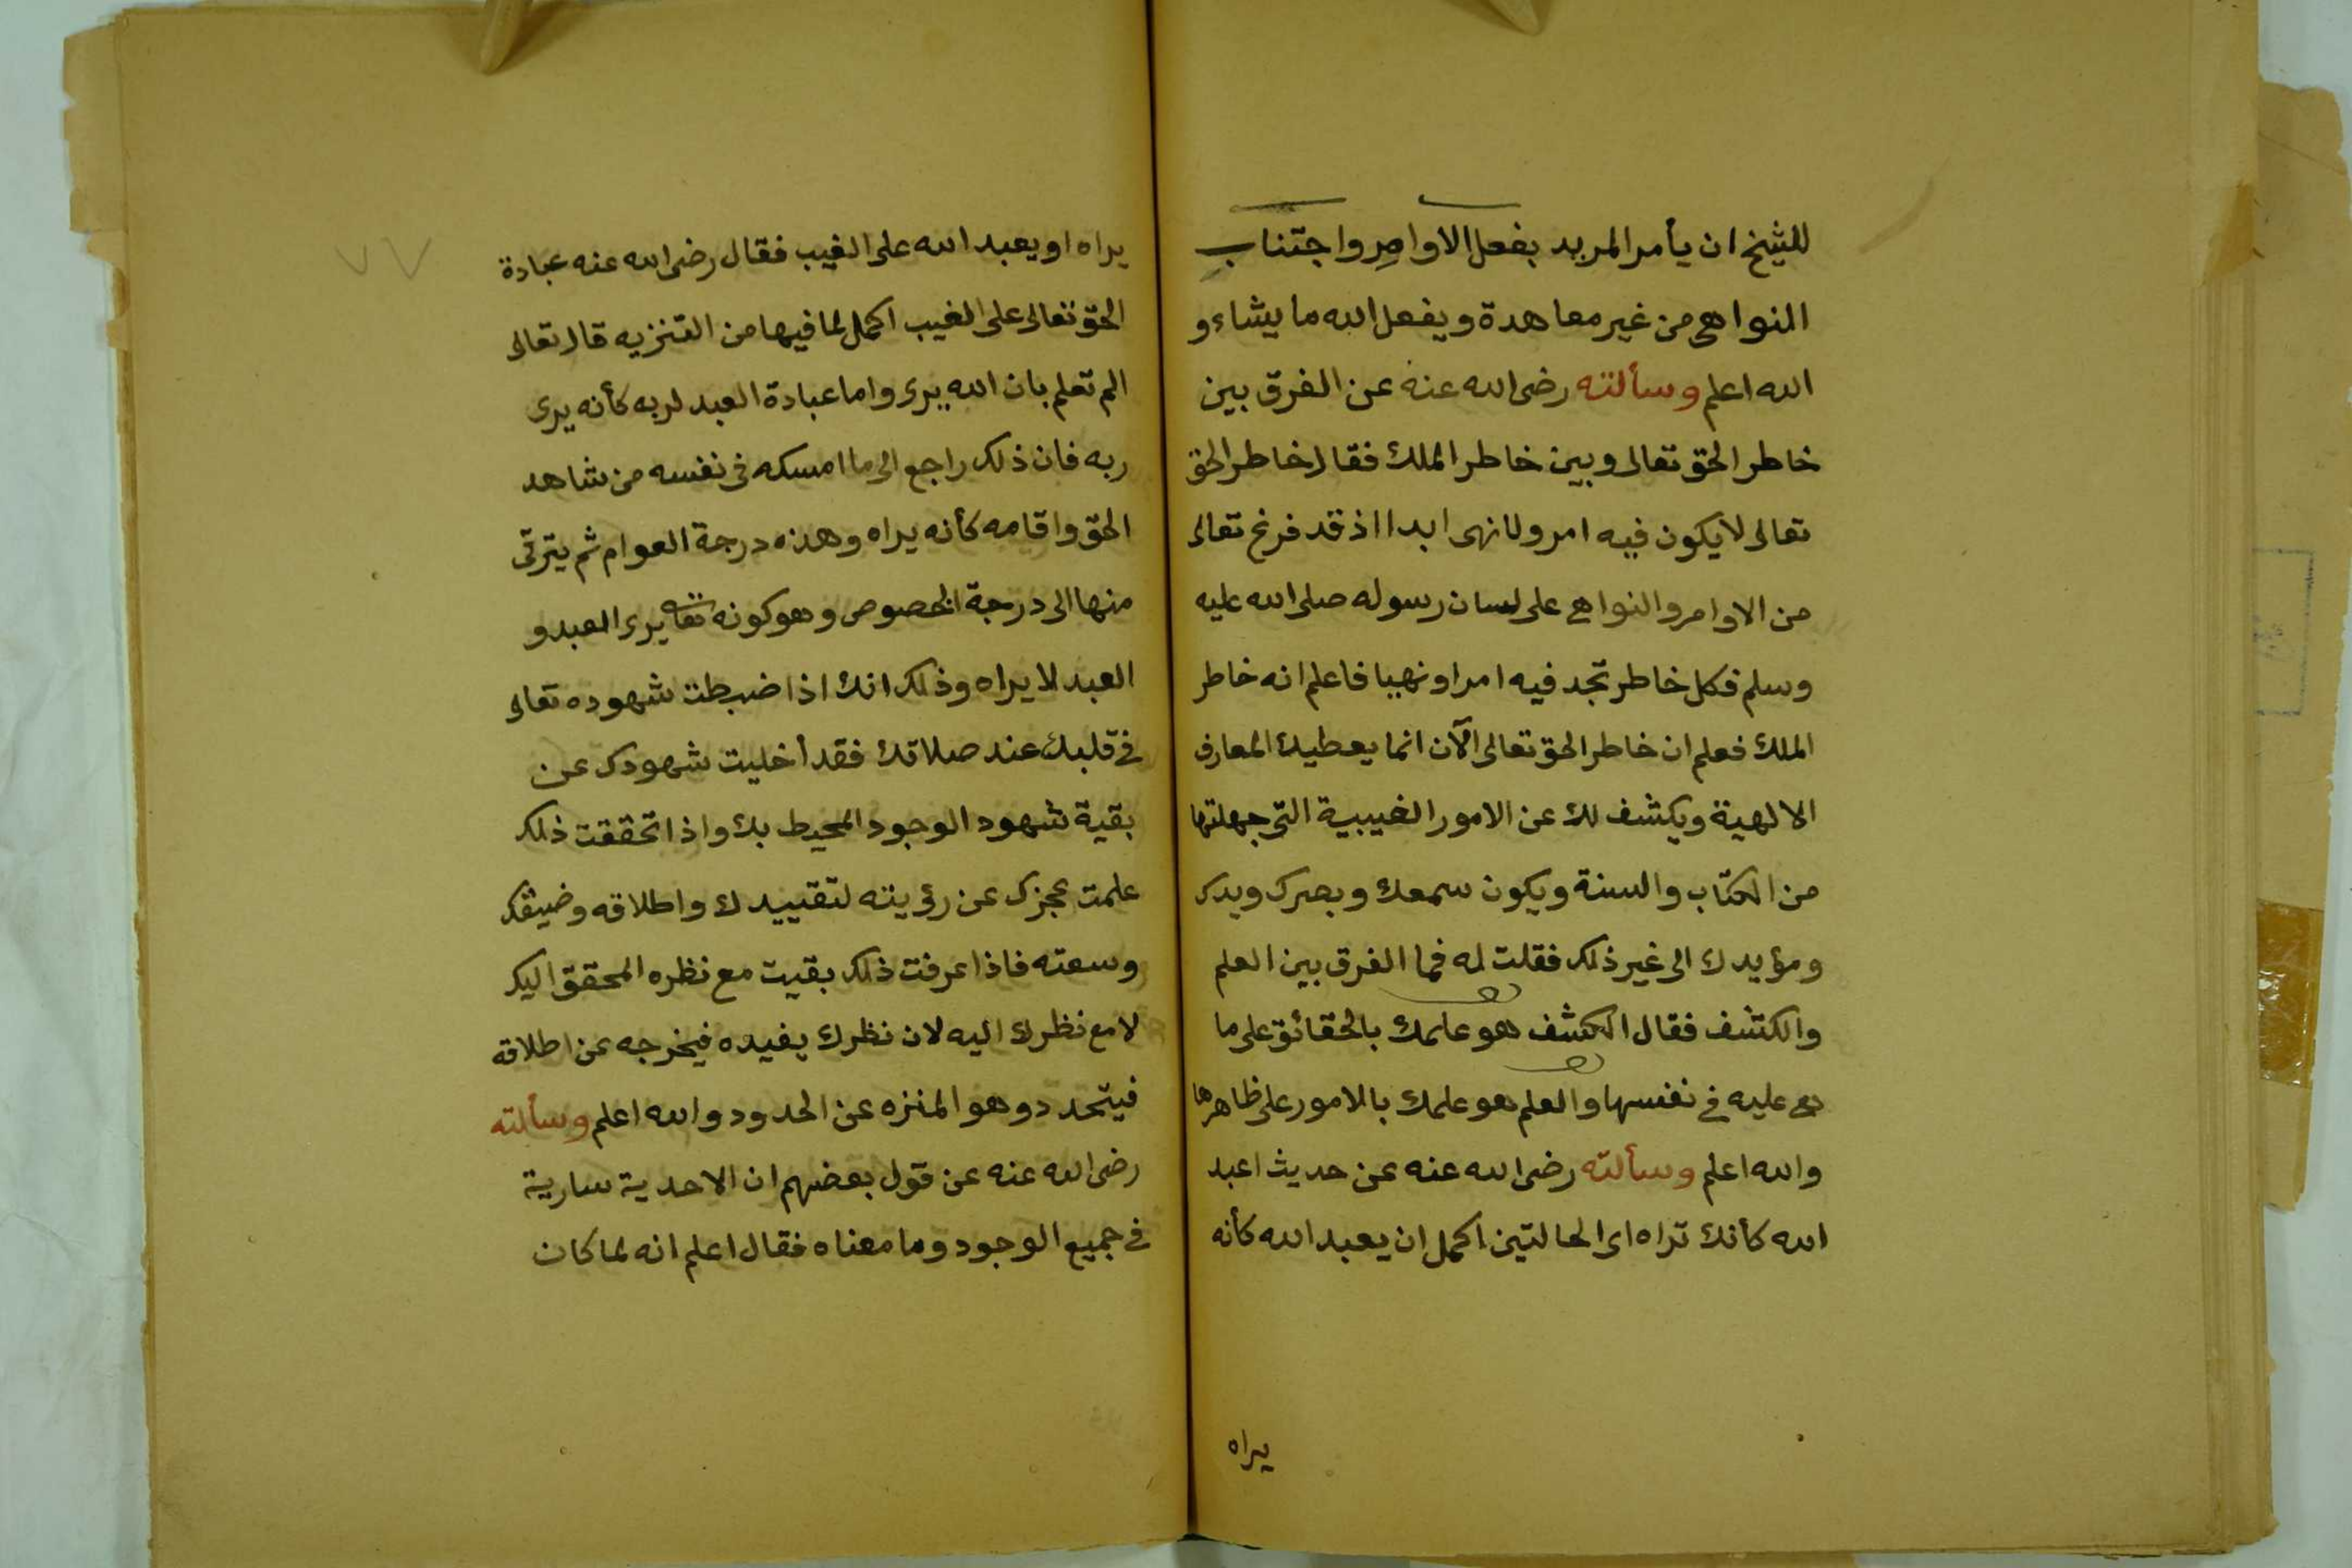 للشيخ ان يأمر المريد بفعل الاوامر واجتناب
النواهي من غير معاهدة ويفعل الله ما يشاء و
الله اعلم وسألته رضى الله عنه عن الفرق بين
خاطر الحق تعالى وبين خاطر الملك فقال خاطر الحق
تعالى لا يكون فيه امر ولا نهى ابدا اذ قد فرغ تعالى
من الاوامر والنواهى على لسان رسوله صلى الله عليه
وسلم فكل خاطر تجد فيه امرا ونهيا فاعلم انه خاطر
الملك فعلم ان خاطر الحق تعالى الآن انما يعطيك المعارف
الالهية ويكشف لك عن الامور الغيبية التى جهلتها
من الكتاب والسنة ويكون سمعك وبصرك ويدك
ومؤيدك الى غير ذلك فقلت له فما الفرق بين العلم
والكشف فقال الكشف هو علمك بالحقائق على ما
هى عليه فى نفسها والعلم هو علمك بالامور على ظاهرها
والله اعلم وسألته رضى الله عنه عن حديث اعبد
الله كأنك تراه اى الحالتين اكمل ان يعبد الله كأنه
يراه
٧٧
يراه او يعبد الله على الغيب فقال رضى الله عنه عبادة
الحق تعالى على الغيب اكمل لما فيها من التنزيه قال تعالى
الم تعلم بان الله يرى واما عبادة العبد لربه كأنه يرى
ربه فان ذلك راجع الى ما امسكه فى نفسه من شاهد
الحق واقامه كأنه يراه وهذه درجة العوام ثم يترقى
منها الى درجة الخصوص وهو كونه تعا يرى العبد و
العبد لا يراه وذلك انك اذا ضبطت شهوده تعالى
فى قلبك عند صلاتك فقد أخليت شهودك عن
بقية شهود الوجود المحيط بك واذا تحققت ذلك
علمت عجزك عن رؤيته لتقييدك واطلاقه وضيقك
وسعته فاذا عرفت ذلك بقيت مع نظره المحقق اليك
لا مع نظرك اليه لان نظرك يفيده فيخرجه عن اطلاقه
فيتحدد وهو المنزه عن الحدود والله اعلم وسألته
رضى الله عنه عن قول بعضهم ان الاحدية سارية
فى جميع الوجود وما معناه فقال اعلم انه لما كان